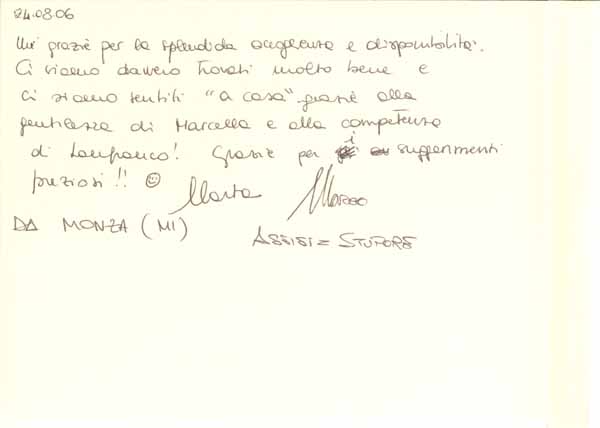 24.08.06
Un grazie per la splendida accoglienza e disponibilità.
Ci siamo davvero trovati molto bene e
ci siamo sentiti "a casa" grazie alla
gentilezza di Marcella e alla competenza
di Lanfranco! Grazie per i suggerimenti
preziosi!! ☺ Marta Marco
DA MONZA (MI)
ASSISI = STUPORE